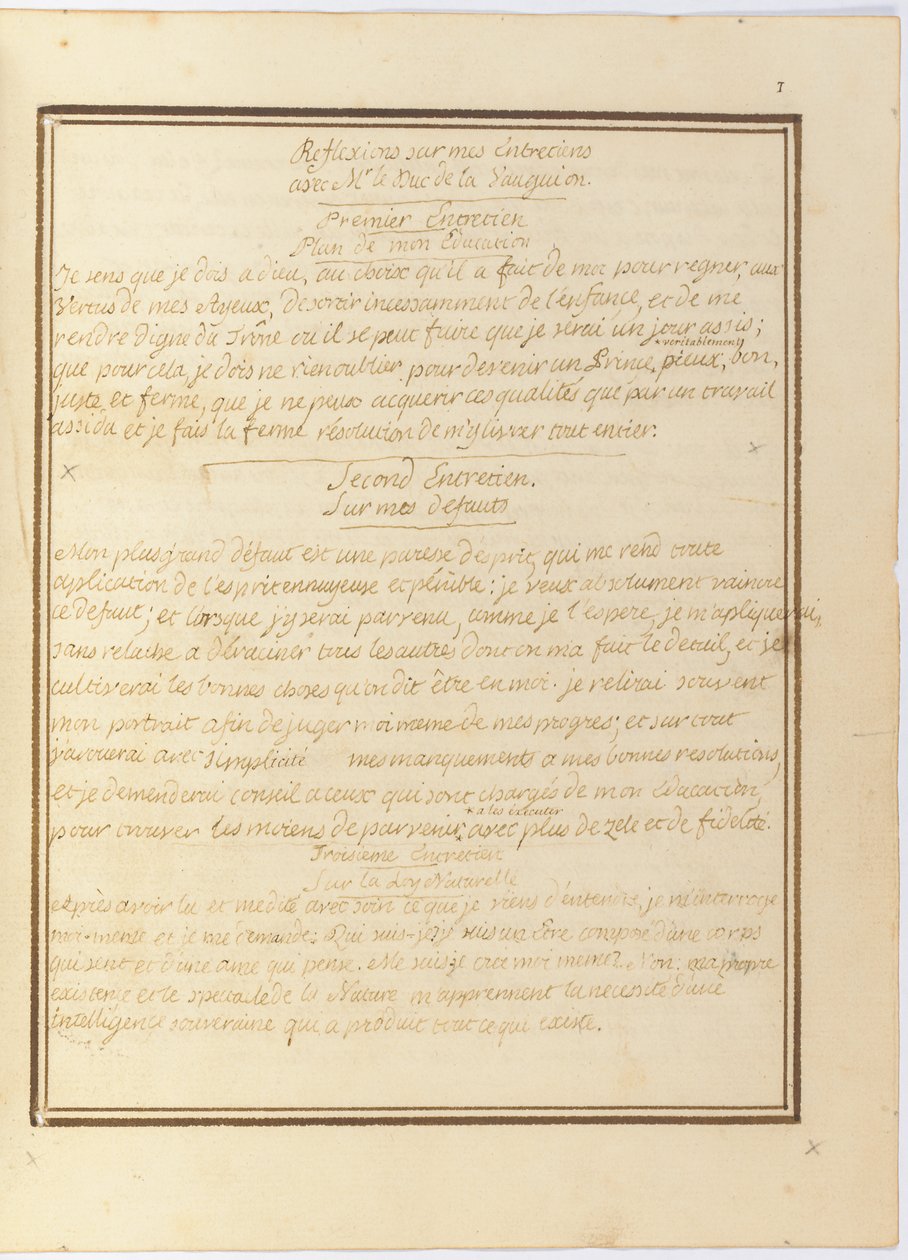 1
Reflexions sur mes Entretiens
avec Mr le Duc de la Vauguion.
Premier Entretien
Plan de mon Education
Je sens que je dois a dieu, au choix qu'il a fait de moi pour regner, aux
Vertus de mes Ayeux, de sortir incessamment de l'enfance, et de me
rendre digne du Trône ou il se peut faire que je serai un jour assis;
* veritablement
que pour cela, je dois ne rien oublier pour devenir un Prince, pieux, bon,
juste et ferme, que je ne peux acquerir ces qualités que par un travail
assidu et je fais la ferme résolution de m'y livrer tout entier.
Second Entretien.
Sur mes défauts
Mon plus grand défaut est une paresse d'esprit, qui me rend toute
aplication de l'esprit ennuyeuse et pénible: je veux absolument vaincre
ce defaut; et lorsque j'y serai parvenu, comme je l'espere, je m'apliquerai,
sans relache a déraciner tous les autres dont on m'a fait le detail, et je
cultiverai les bonnes choses qu'on dit être en moi. je relirai souvent
mon portrait afin de juger moi meme de mes progres; et sur tout
j'avouerai avec simplicité mes manquements a mes bonnes resolutions,
et je demenderai conseil a ceux qui sont chargés de mon Education,
* a les éxécuter
pour trouver les moiens de parvenir * avec plus de zele et de fidelité.
Troisieme Entretien
Sur la Loy Naturelle
Après avoir lu et medité avec soin ce que je viens d'entendre, je m'interroge
moi-meme et je me demande: Qui suis-je? je suis un Être composé d'une corps
qui sent et d'une ame qui pense. Me suis-je créé moi meme? Non: ma propre
existence et le spectacle de la Nature m'apprennent la necessité d'une
intelligence souveraine qui a produit tout ce qui existe.